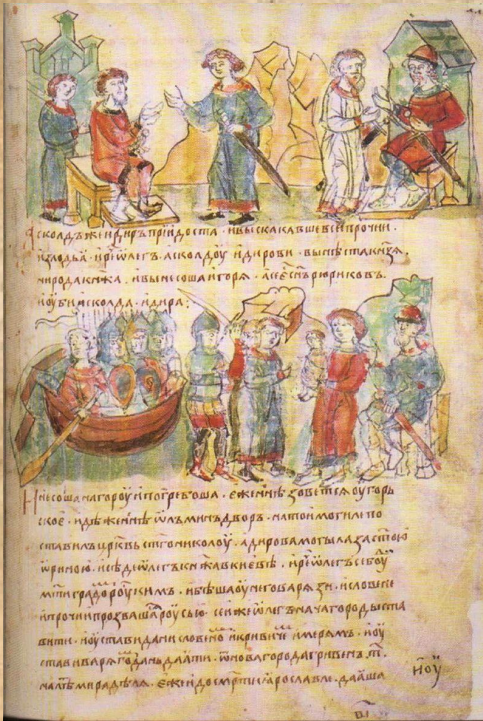 Асколдъ же и диръ приидоста · и выскакавше вси прочии
из лодьа · и рⷱ҇е ѡлегъ асколдоу и дирови · вы нѣста кн҃зѧ
ни рода кн҃жа · и вынесоша игорѧ · а се е сн҃ъ рюриковъ ·
и оуби асколда · и дира :
И несоша на гороу и погребоша · еже н҃нѣ зоветсѧ оугорь
ское · идѣже н҃нѣ ѡлъминъ дворъ · на тои могиле по
ставилъ црк҃вь ст҃го николоу · а дирова могыла за ст҃ою
ѡриною · и сѣде ѡлегъ кн҃жа в киевѣ · и рⷱ҇е ѡлегъ се боуⷣ
мт҃и градоⷨ роускимъ · и бѣша оу него варѧзи · и словене
и прочии прозвашаⷭ роусью · се же ѡлегъ нача городы ста
вити · и оустави дани словеноⷨ и кривичеⷨ и мерѧмъ · и оу
стави варѧгоⷨ дань даати · ѿ новагорода гривенъ · т҃ ·
на лѣⷮ мира дѣлѧ · еже и до см҃рти ӕрославлѧ · даӕша